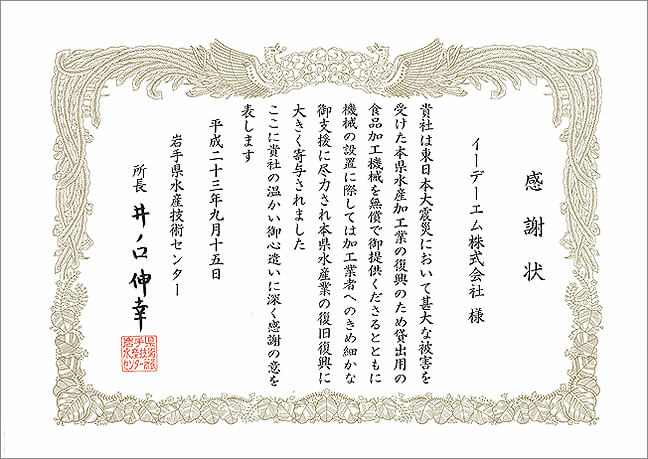 感謝状
イーデーエム株式会社 様
貴社は東日本大震災において甚大な被害を
受けた本県水産加工業の復興のため貸出用の
食品加工機械を無償で御提供くださるとともに
機械の設置に際しては加工業者へのきめ細かな
御支援に尽力され本県水産業の復旧復興に
大きく寄与されました
ここに貴社の温かい御心遣いに深く感謝の意を
表します
平成二十三年九月十五日
岩手県水産技術センター
所長 井ノ口伸幸
岩手県
水産技術
センター所長